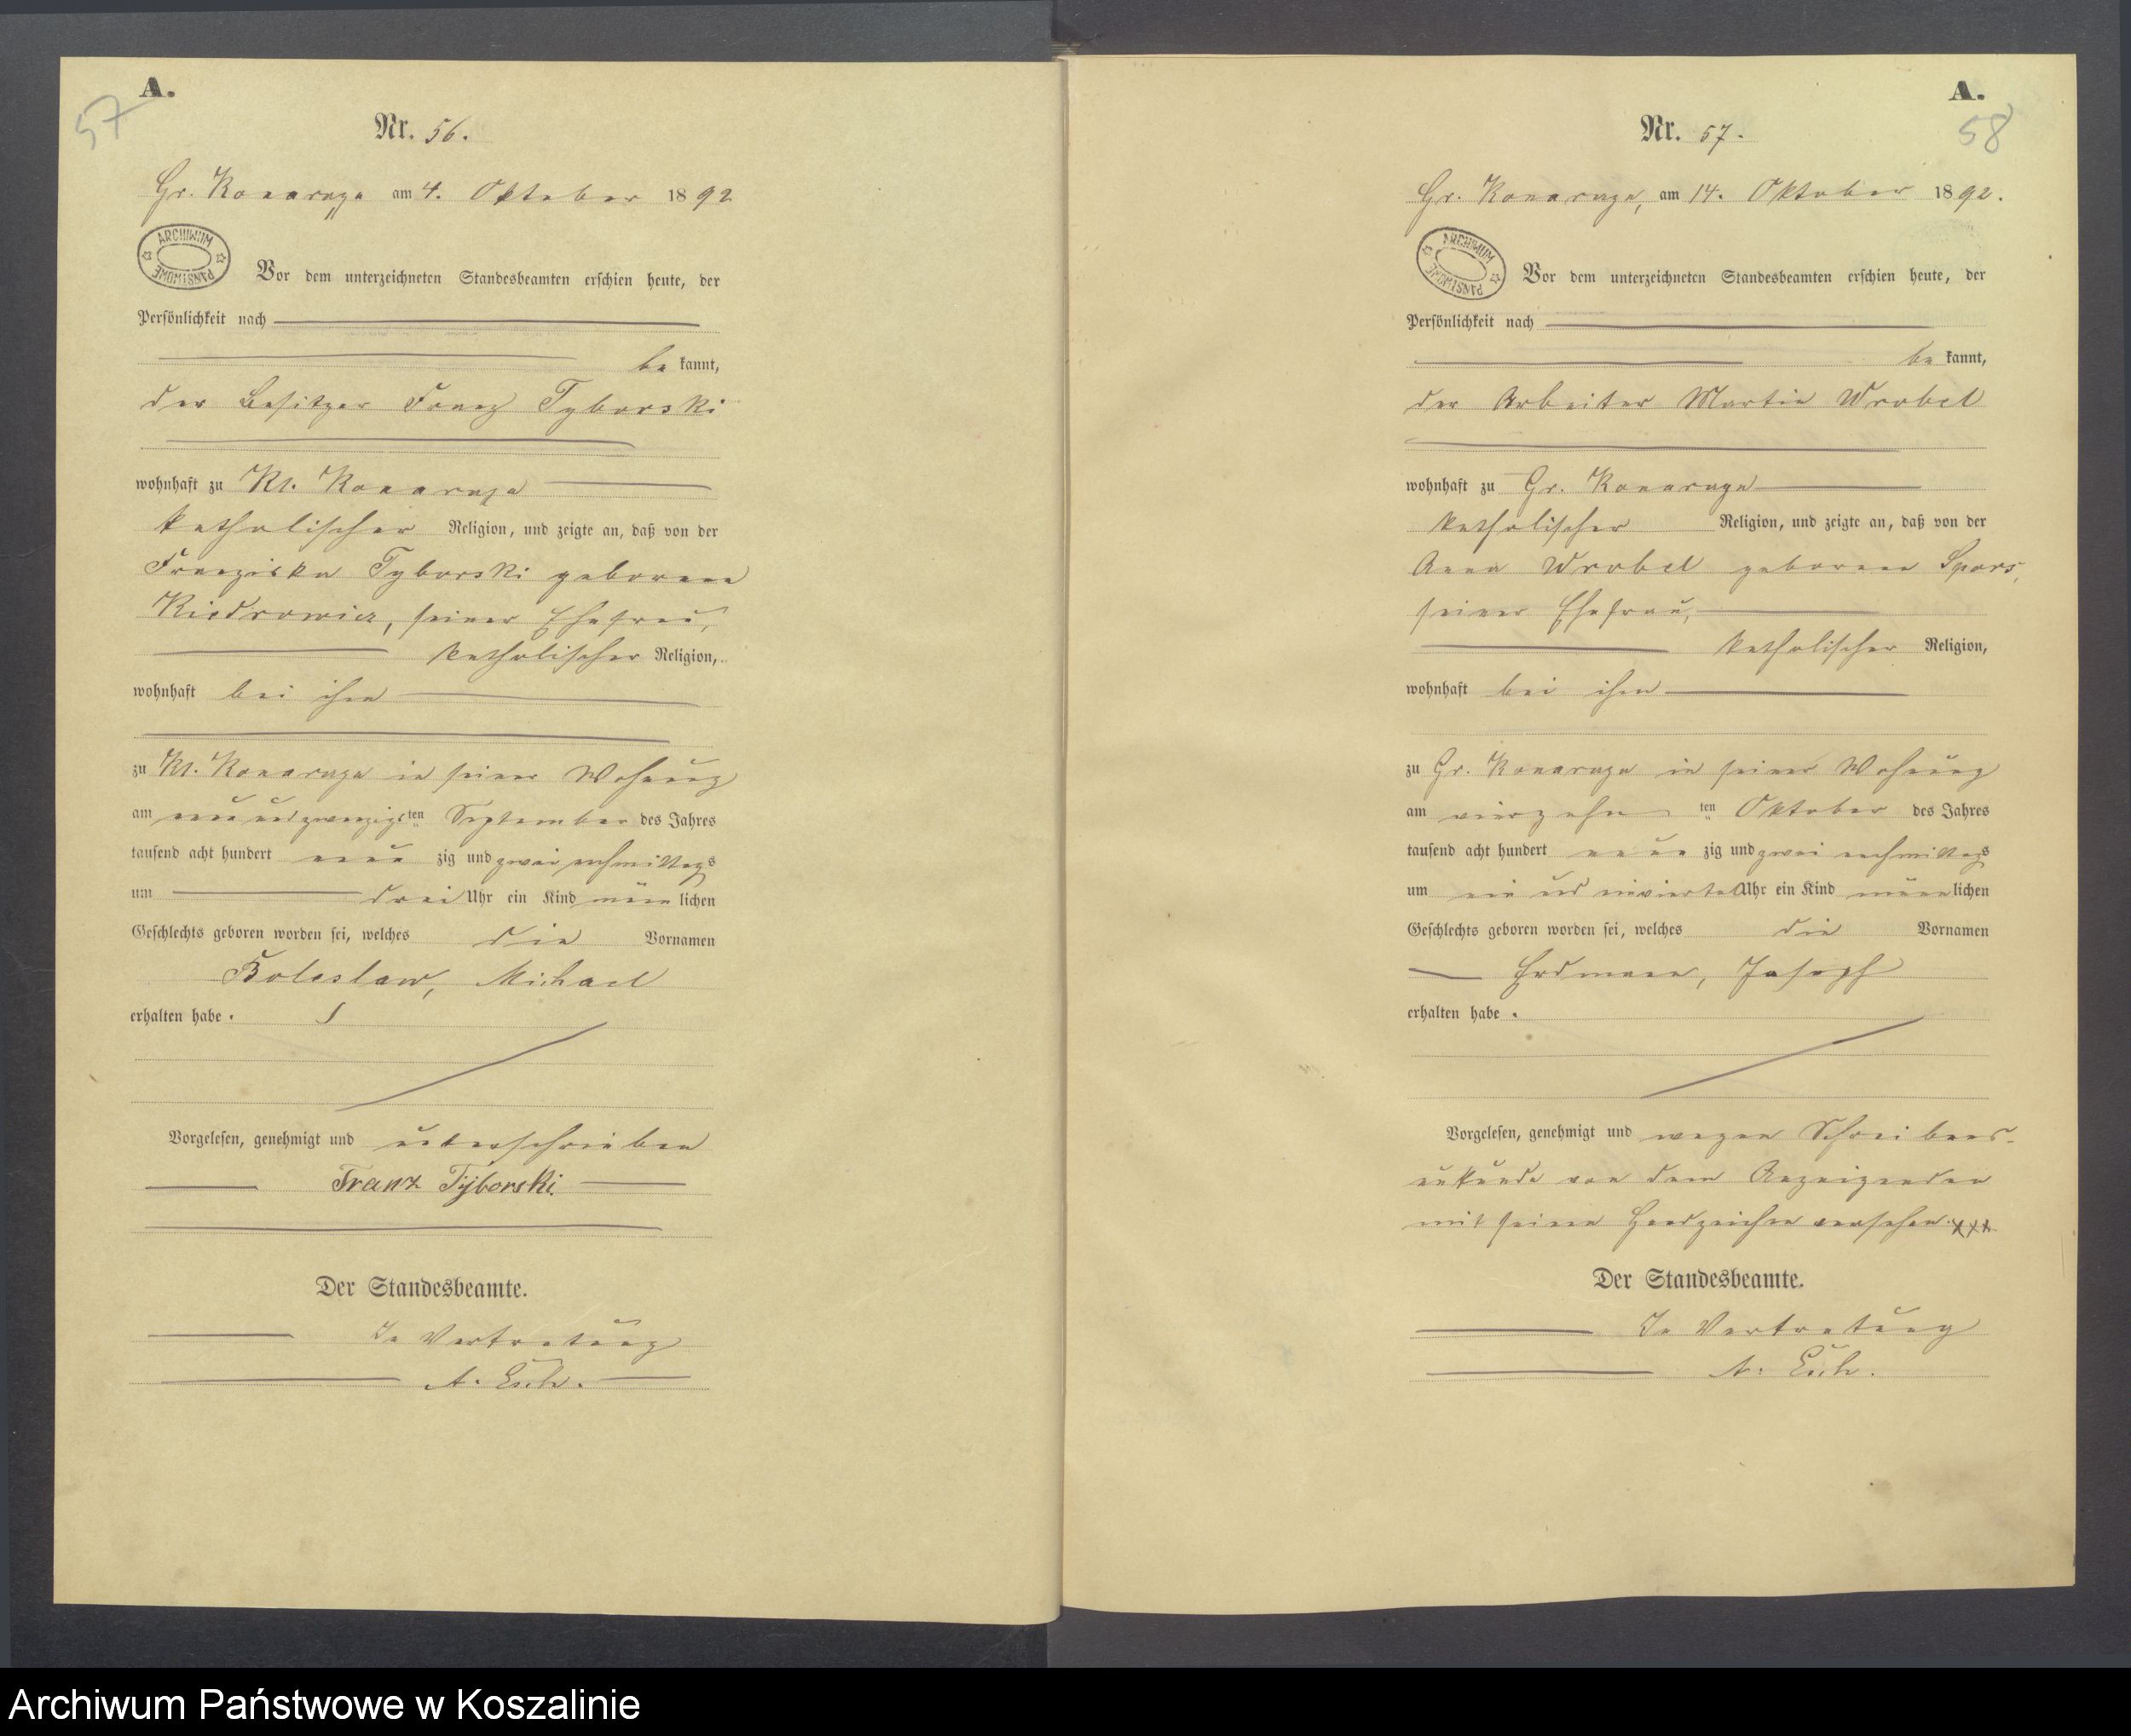 A.
57
Nr. 56.
Gr. Konarczyn am 4. Oktober 1892
ARCHIWUM PAŃSTWOWE
Vor dem unterzeichneten Standesbeamten erschien heute, der
Persönlichkeit nach
be kannt,
der Besitzer Franz Tyborski
wohnhaft zu Kl. Konarczyn
katholischer Religion, und zeigte an, daß von der
Franziska Tyborski geborene
Kiedrowicz, seiner Ehefrau,
katholischer Religion,
wohnhaft bei ihm
zu Kl. Konarczyn in seiner Wohnung
am neunundzwanzigsten September des Jahres
tausend acht hundert neun zig und zwei nachmittags
um drei Uhr ein Kind männ lichen
Geschlechts geboren worden sei, welches die Vornamen
Boleslaw, Michael
erhalten habe.
Vorgelesen, genehmigt und unterschrieben
Franz Tyborski.
Der Standesbeamte.
In Vertretung
A.
A.
58
Nr. 57.
Gr. Konarczyn, am 14. Oktober 1892.
ARCHIWUM PAŃSTWOWE
Vor dem unterzeichneten Standesbeamten erschien heute, der
Persönlichkeit nach
be kannt,
der Arbeiter Martin Wrobel
wohnhaft zu Gr. Konarczyn
katholischer Religion, und zeigte an, daß von der
Anna Wrobel geborene Spors,
seiner Ehefrau,
katholischer Religion,
wohnhaft bei ihm
zu Gr. Konarczyn in seiner Wohnung
am vierzehn ten Oktober des Jahres
tausend acht hundert neun zig und zwei nachmittags
um ein und einviertel Uhr ein Kind männ lichen
Geschlechts geboren worden sei, welches die Vornamen
Erdmann, Joseph
erhalten habe.
Vorgelesen, genehmigt und wegen Schreibens-
unkunde von dem Anzeigenden
mit seinem Handzeichen versehen. xxx
Der Standesbeamte.
In Vertretung
A.
Archiwum Państwowe w Koszalinie